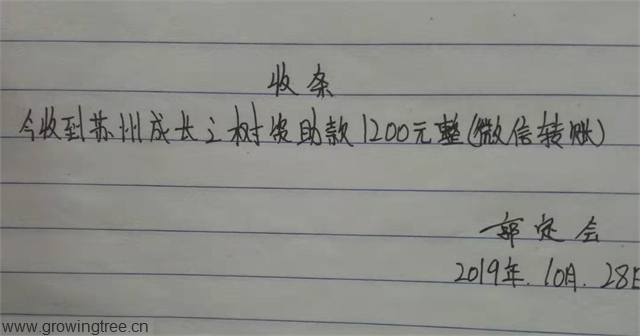 收条
今收到苏州成长之树资助款1200元整(微信转账)
郭定会
2019年.10月.28日
www.growingtree.cn